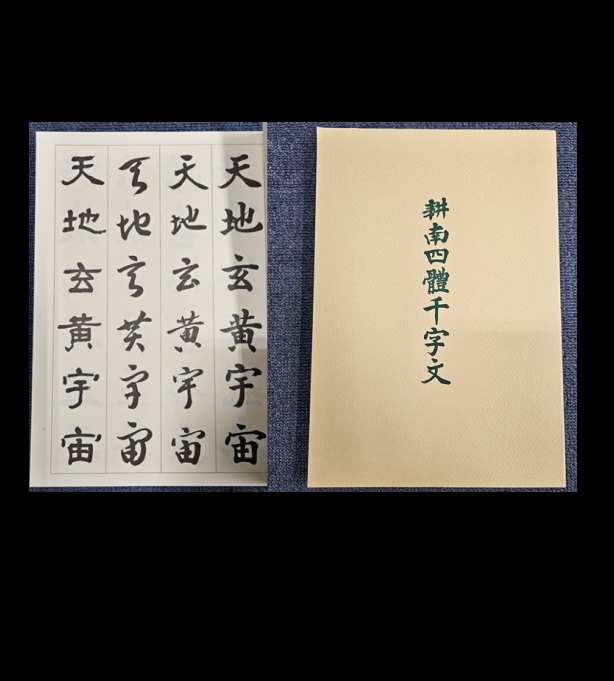 天地玄黄宇宙
天地玄黄宇宙
天地玄黄宇宙
天地玄黄宇宙
耕南四體千字文